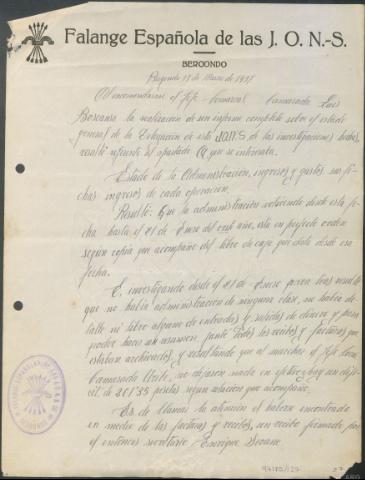 Falange Española de las J. O. N.-S.
BERGONDO
Bergondo 17 de Marzo de 1937
Al encomendarme el Jefe Comarcal Camarada Luis
la realización de un informe completo sobre el estado
general de la Delegación de esta J.O.N.S. de las investigaciones hechas,
resultó referente al apartado A) que se interesaba.
Estado de la Administración, ingresos y gastos sus fe
chas ingresos de cada operación.
Resulta: Que la administración relacionada desde esta fe
cha hasta el 21 de Enero del cte año, está en perfecto orden
según copia que acompaño del libro de caja que data desde esa
fecha.
E, investigando desde el 21 de Enero para tras resulta
que no había administración de ninguna clase, no había de
talle ni libro alguno de entradas y salidas de dinero y para
poder hacer un resumen junté todos los recibos y facturas que
estaban archivados, y resultando que al marchar el Jefe
Camarada no dejaron nada en efectivo y hay un défi
cit de 201'35 pesetas según relación que acompaño.
Es de llamar la atención el haber encontrado
en medio de las facturas y recibos, un recibo firmado por
el entonces secretario Enrique Seoane